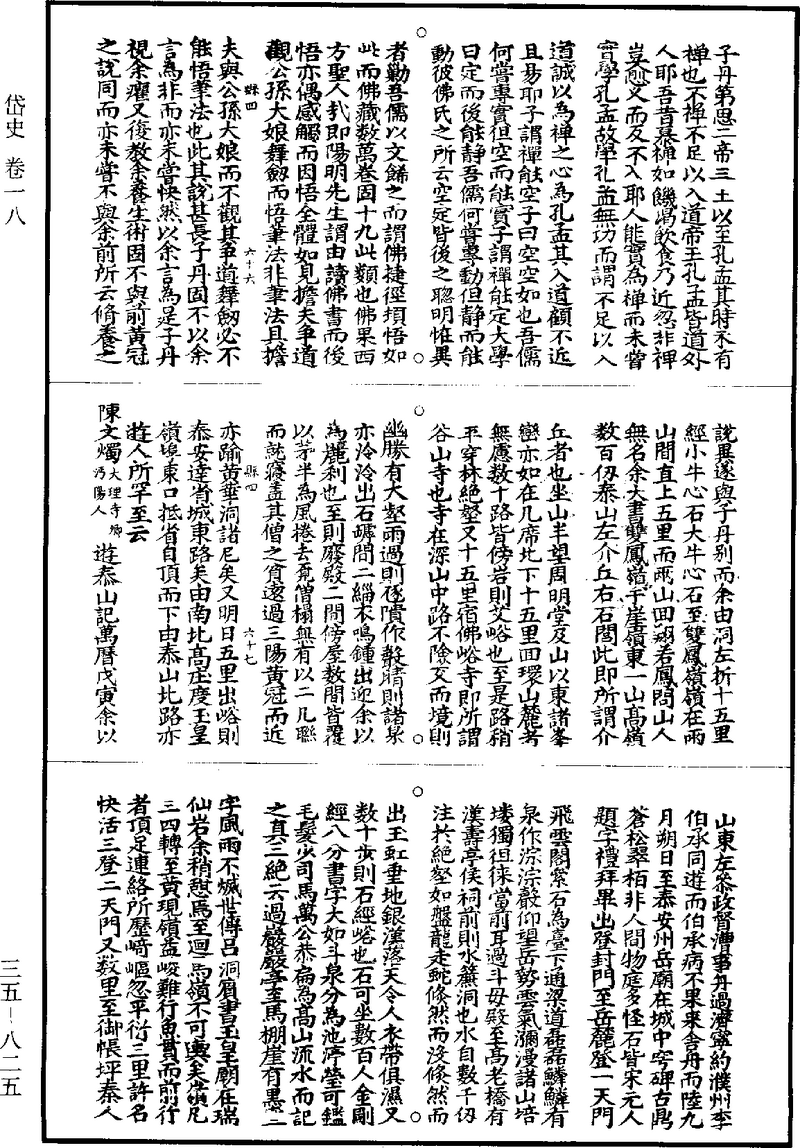 岱史 卷一八
子丹第思二帝三王以至孔孟其時未有
禪也不禪不足以入道帝王孔孟皆道外
人耶吾昔慕禪如饑渴飲食乃近忽非禪
豈愈乂而反不入耶人能實為禪而未嘗
實學孔孟故學孔孟無功而謂不足以入
道誠以為禪之心為孔孟其入道顧不近
且易耶子謂禪能空子曰空空如也吾儒
何嘗專實但空而能實子謂禪能定大學
曰定而後能静吾儒何嘗專動但静而能
動彼佛氏之所云空定皆後之聰明惟異
者勦吾儒以文餙之而謂佛捷徑頓悟如
此而佛藏数萬卷固十九此類也佛果西
方聖人㢤即陽明先生謂由讀佛書而後
悟亦偶感觸而因悟全體如見擔夫争道
觀公孫大娘舞劒而悟筆法非筆法具擔
縣四 六十六
夫與公孫大娘而不觀其争道舞劒必不
能悟筆法也此其說甚長子丹固不以余
言為非而亦未嘗快然以余言為是子丹
視余癯又復教余養生術固不與前黄冠
之說同而亦未嘗不與余前所云脩養之
說異遂與子丹别而余由洞左折十五里
經小牛心石大牛心石至雙鳳嶺嶺在兩
山間直上五里而兩山回翔若鳳問山人
無名余大書雙鳳嶺于崖嶺東一山高嶺
数百仭泰山左介丘右石閭此即所謂介
丘者也坐山半望周明堂及山以東諸峯
巒亦如在几席地下十五里回環山麓者
無慮数十路皆傍岩則艾峪也至是路稍
平穿林絶壑又十五里宿佛峪寺即所謂
谷山寺也寺在深山中路不險而境則
幽勝有大壑雨過則隤作晴則諸泉
亦泠泠出石間二緇衣鳴鍾出迎余以
為麗利也至則廢殿二間傍屋数間皆覆
以茅半為風捲去竟僧榻無有以二几聮
而就寝盖其僧之貧遠過三陽黄冠而近
縣四 六十七
亦踰黄華洞諸尼矣又明日五里出峪則
泰安達省城東路矣由南北高庄度玉皇
嶺埠東口抵省自頂而下由泰山北路亦
遊人所罕至云
陳文燭 大理寺卿 沔陽人 遊泰山記萬曆戊寅余以
山東左叅政督漕事丹過濟寧約濮州李
伯承同遊而伯承病不果来舍舟而陸九
月朔日至泰安州岳廟在城中穹碑古鼎
蒼松翠栢非人間物庭多怪石皆宋元人
題字禮拜畢出登封門至岳麓登一天門
飛雲閣紫石為臺下通梁道磊磊鱗鱗有
泉作淙淙聲仰望岳勢雲氣瀰漫諸山培
塿獨徂徠當前耳過斗母殿至高老橋有
漢壽亭侯祠前則水簾洞也水自数千仭
注於絶壑如盤龍走蛇倏然而没倏然而
出玉虹垂地銀漢落天令人衣帶俱濕又
数十歩則石經峪也石可坐數百人金剛
經八分書字大如斗泉分為池渟瑩可鑑
毛髮少司馬萬公恭扁為高山流水而記
之真三絶云過巖巖亭至馬棚崖有墨二
字風雨不㓕世傳吕洞賓書玉皇廟在瑞
仙岩余稍憩焉至迴馬嶺不可輿矣嶺凡
三四轉至黄現嶺益峻難行魚貫而前行
者頂足連絡所歷﨑嶇忽平衍三里許名
快活三登二天門又数里至御帳坪秦人
三五－八二五